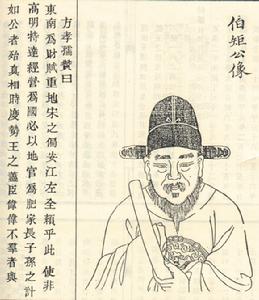 伯矩公像
方孝孺贊曰
東南為財賦重地宋之偏安江左全賴乎此 使非
高明特達經營為國必以地官為肥家長子孫之計
如公者殆真相時度勢王之藎臣偉偉不羣者與